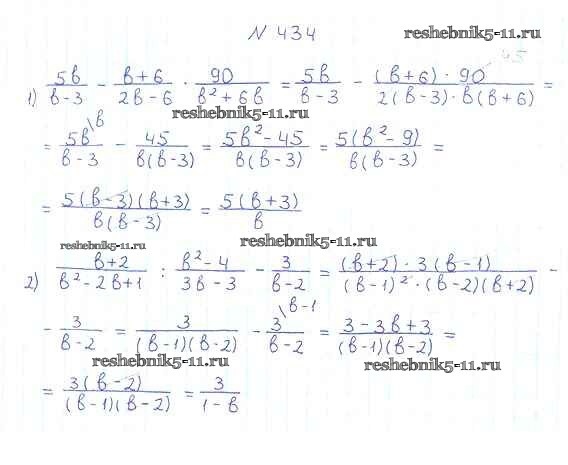 N 434
reshebnik5-11.ru
45
1) 5b/(b-3) - (b+6)/(2b-6) · 90/(b²+6b) = 5b/(b-3) - ((b+6)·90)/(2(b-3)·b(b+6)) =
reshebnik5-11.ru
= 5b\b/(b-3) - 45/(b(b-3)) = (5b²-45)/(b(b-3)) = (5(b²-9))/(b(b-3)) =
= (5(b-3)(b+3))/(b(b-3)) = (5(b+3))/b
reshebnik5-11.ru
reshebnik5-11.ru
2) (b+2)/(b²-2b+1) : (b²-4)/(3b-3) - 3/(b-2) = ((b+2)·3(b-1))/((b-1)²·(b-2)(b+2)) -
- 3/(b-2) = 3/((b-1)(b-2)) - 3\b-1/(b-2) = (3-3b+3)/((b-1)(b-2)) =
reshebnik5-11.ru
reshebnik5-11.ru
= (3(b-2))/((b-1)(b-2)) = 3/(1-b)